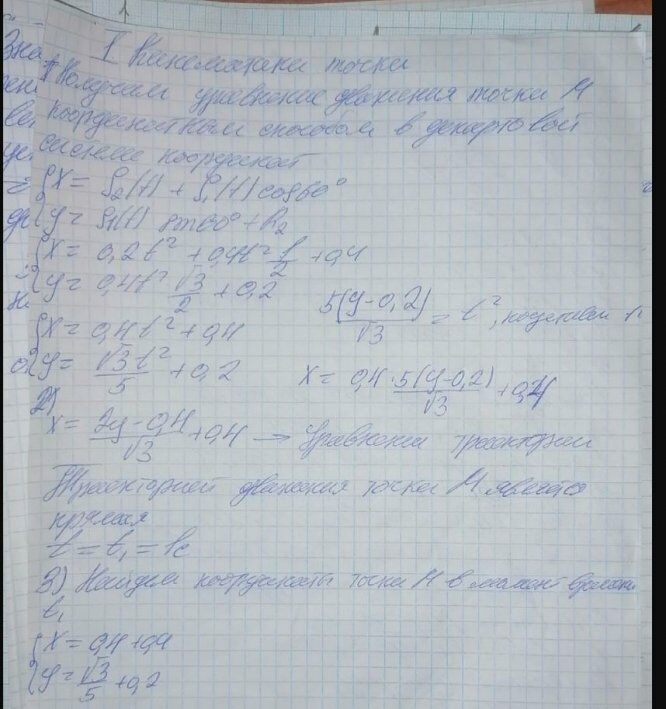 I Кинематика точки
1) Получим уравнение движения точки М
координатным способом в декартовой
системе координат
{x = S₂(t) + S₁(t) cos60°
{y = S₁(t) sin60° + R₂
{x = 0,2t² + 0,4t² 1/2 + 0,4
{y = 0,4t² √3/2 + 0,2
{x = 0,4t² + 0,4
{y = √3t²/5 + 0,2
5(y-0,2)/√3 = t², подставим
x = 0,4 · 5(y-0,2)/√3 + 0,4
2)
x = 2y-0,4/√3 + 0,4 → Уравнение траектории
Траекторией движения точки М является
прямая
t = t₁ = 1с
3) Найдем координаты точки М в момент времени
t₁
{x = 0,4 + 0,4
{y = √3/5 + 0,2